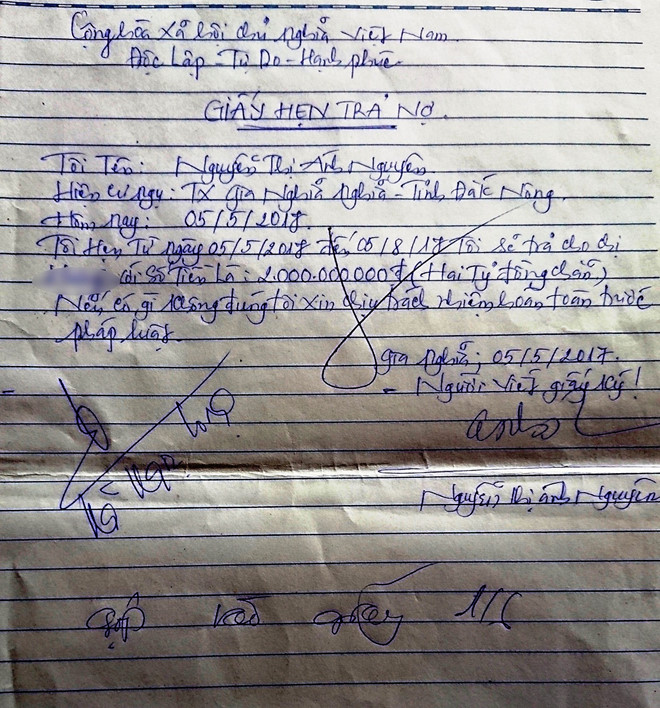 Cộng hòa xã hội chủ nghĩa Việt Nam.
Độc Lập - Tự Do - Hạnh phúc
GIẤY HẸN TRẢ NỢ.
Tôi Tên: Nguyễn Thị Ánh Nguyên.
Hiện cư ngụ: TX Gia Nghĩa Nghĩa - Tỉnh Đăk Nông.
Hôm nay: 05/5/2017.
Tôi Hẹn Từ ngày 05/5/2017 đến 05/8/17 Tôi sẽ trả cho chị
với Số Tiền Là: 2.000.000.000đ (Hai Tỷ đồng chẵn)
Nếu có gì không đúng tôi xin chịu trách nhiệm hoàn toàn trước
pháp luật.
Gia Nghĩa, 05/5/2017.
- Người viết giấy ký!
Nguyễn Thị Ánh Nguyên